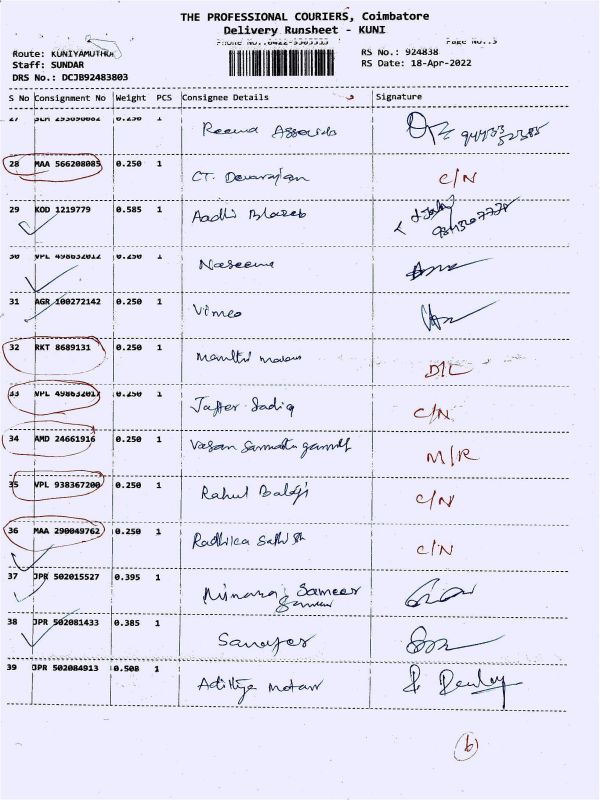 THE PROFESSIONAL COURIERS, Coimbatore
Delivery Runsheet - KUNI
Page No.:3
Route: KUNIYAMUTHUR
RS No.: 924838
Staff: SUNDAR
RS Date: 18-Apr-2022
DRS No.: DCJB92483803
S No Consignment No Weight PCS Consignee Details Signature
27 0.250 1 Reema
28 MAA 566208085 0.250 1 CT. Devarajan C/N
29 KOD 1219779 0.585 1 Aadhi
30 VPL 498632012 0.250 1 Naseema
31 AGR 100272142 0.250 1 Vimeo
32 RKT 8689131 0.250 1 D/L
33 VPL 498632017 0.250 1 Jaffer Sadiq C/N
34 AMD 24661916 0.250 1 Vasan M/R
35 VPL 938367200 0.250 1 Rahul Balaji C/N
36 MAA 290049762 0.250 1 Radhika Sathish C/N
37 JPR 502015527 0.395 1 Sameer
38 JPR 502081433 0.385 1
39 JPR 502084913 0.508 1 Adithya
6